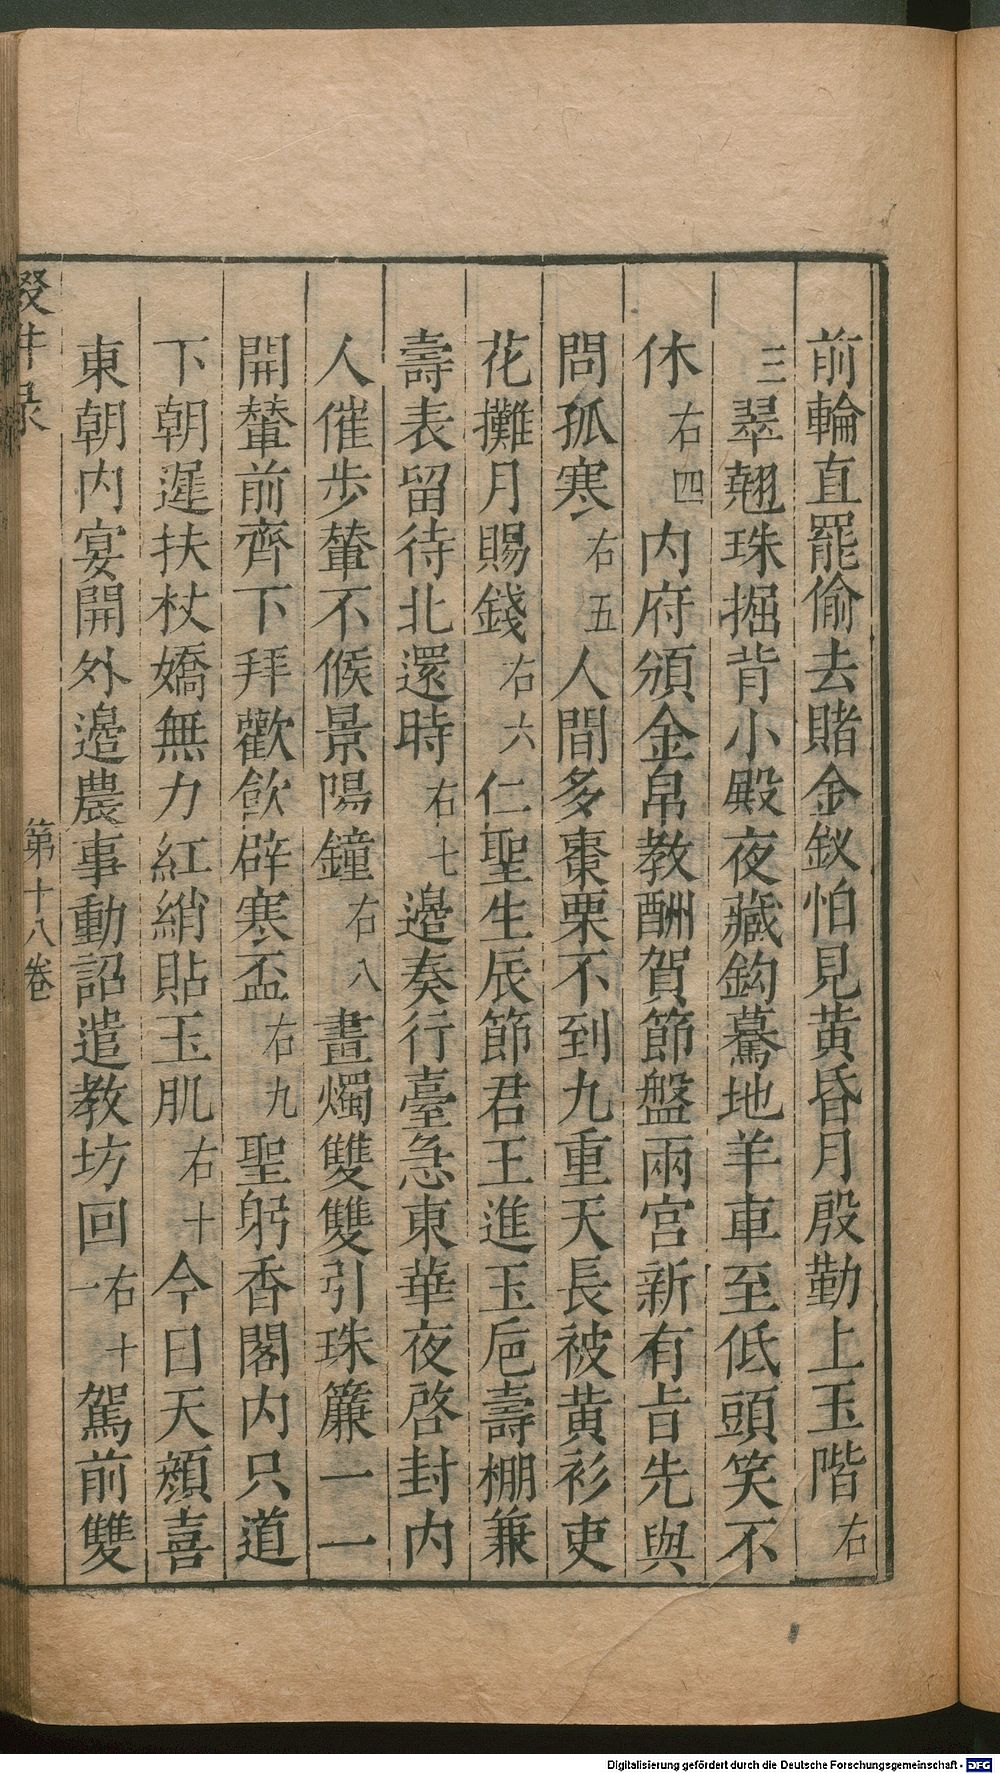 前輪直罷偷去賭金釵怕見黃昏月殷勤上玉階右
三翠翹珠掘背小殿夜藏鈎驀地羊車至低頭笑不
休右四内府頒金帛教酬賀節盤兩宮新有旨先與
問孤寒右五人間多棗栗不到九重天長被黃衫吏
花攤月賜錢右六仁聖生辰節君王進玉巵壽棚兼
壽表留待北還時右七邉奏行臺急東華夜啓封内
人催步輦不候景陽鐘右八畫燭雙雙引珠簾一一
開輦前齊下拜歡飲辟寒盃右九聖躬香閣内只道
下朝遲扶杖嬌無力紅綃貼玉肌右十今日天顔喜
東朝内宴開外邉農事動詔遣教坊回右十一駕前雙
輟井录 第十八卷
Digitalisierung gefördert durch die Deutsche Forschungsgemeinschaft - DFG